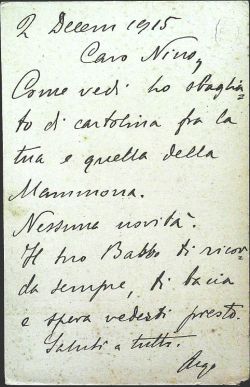 2 Decem 1915
Caro Nino,
Come vedi ho sbaglia=
to di cartolina fra la
tua e quella della
Mammona.
Nessuna novità.
Il tuo Babbo ti ricor=
da sempre, ti bacia
e spera vederti presto.
Saluti a tutti.